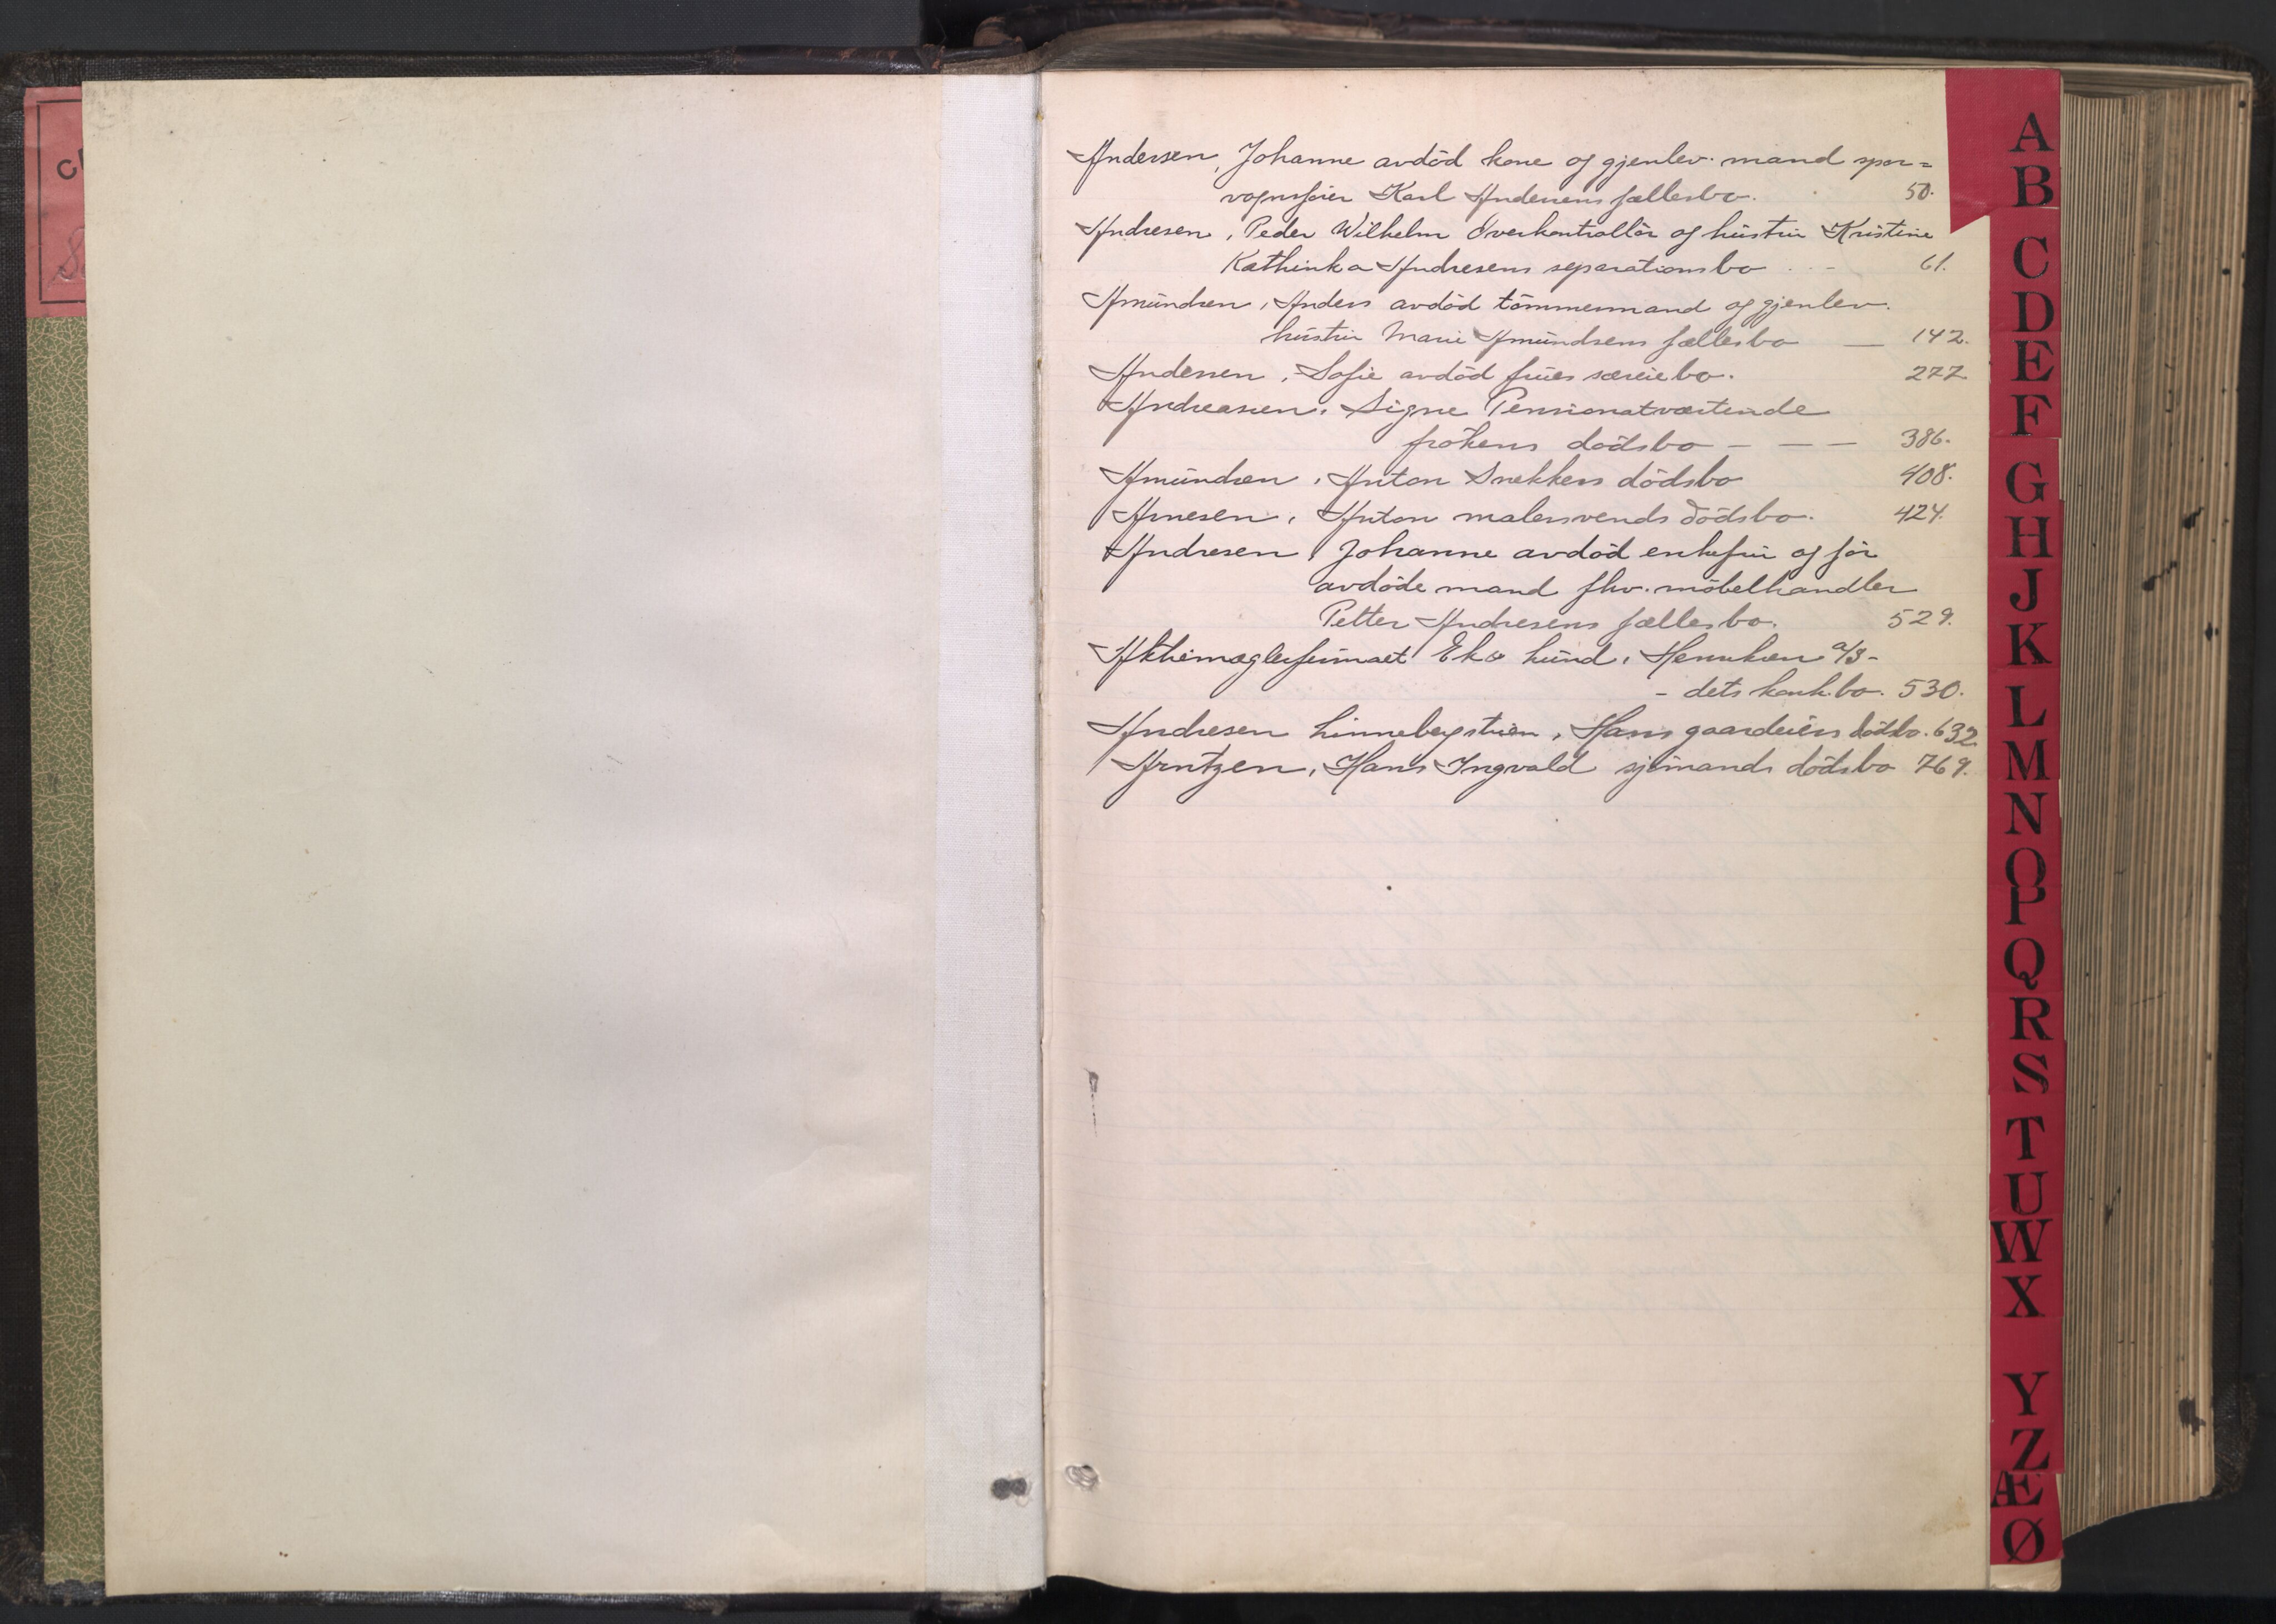 Andersen, Johanne avdöd kone og gjenlev. mand spor=
vognsfører Karl Andersens fællesbo. 50.
Andresen, Peder Wilhelm Overkontrollör og hustru Kristine
Kathinka Andresens separationsbo 61.
Amundsen, Anders avdöd tömmermand og gjenlev.
hustru Marie Amundsens fællesbo — 142.
Andersen, Sofie avdöd frues særeiebo. 277
Andreassen, Signe Pensionatværtinde
frökens dödsbo — — — 386.
Amundsen, Anton Snekkers dödsbo 408.
Arnesen, Anton malersvends dödsbo. 424.
Andresen, Johanne avdöd enkefru og før
avdöde mand fhv. möbelhandler
Petter Andresens fællesbo. 529.
Aktiemæglerfirmaet A/S -
- dets konk.bo. 530.
Andresen Linnebergstuen, Hans gaardeiers dödsbo. 632
Arntzen, Hans Ingvald sjømands dödsbo 769.
A
B
C
D
E
F
G
H
J
K
L
M
N
O
P
Q
R
S
T
U
W
X
Y
Z
Æ
Ø